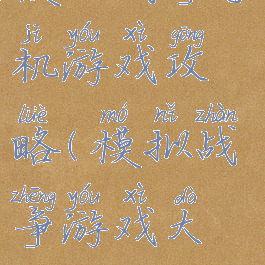 jī yóu xì gōng
机游戏攻
lüè mó nǐ zhàn
略(模拟战
zhēng yóu xì dà
争游戏大